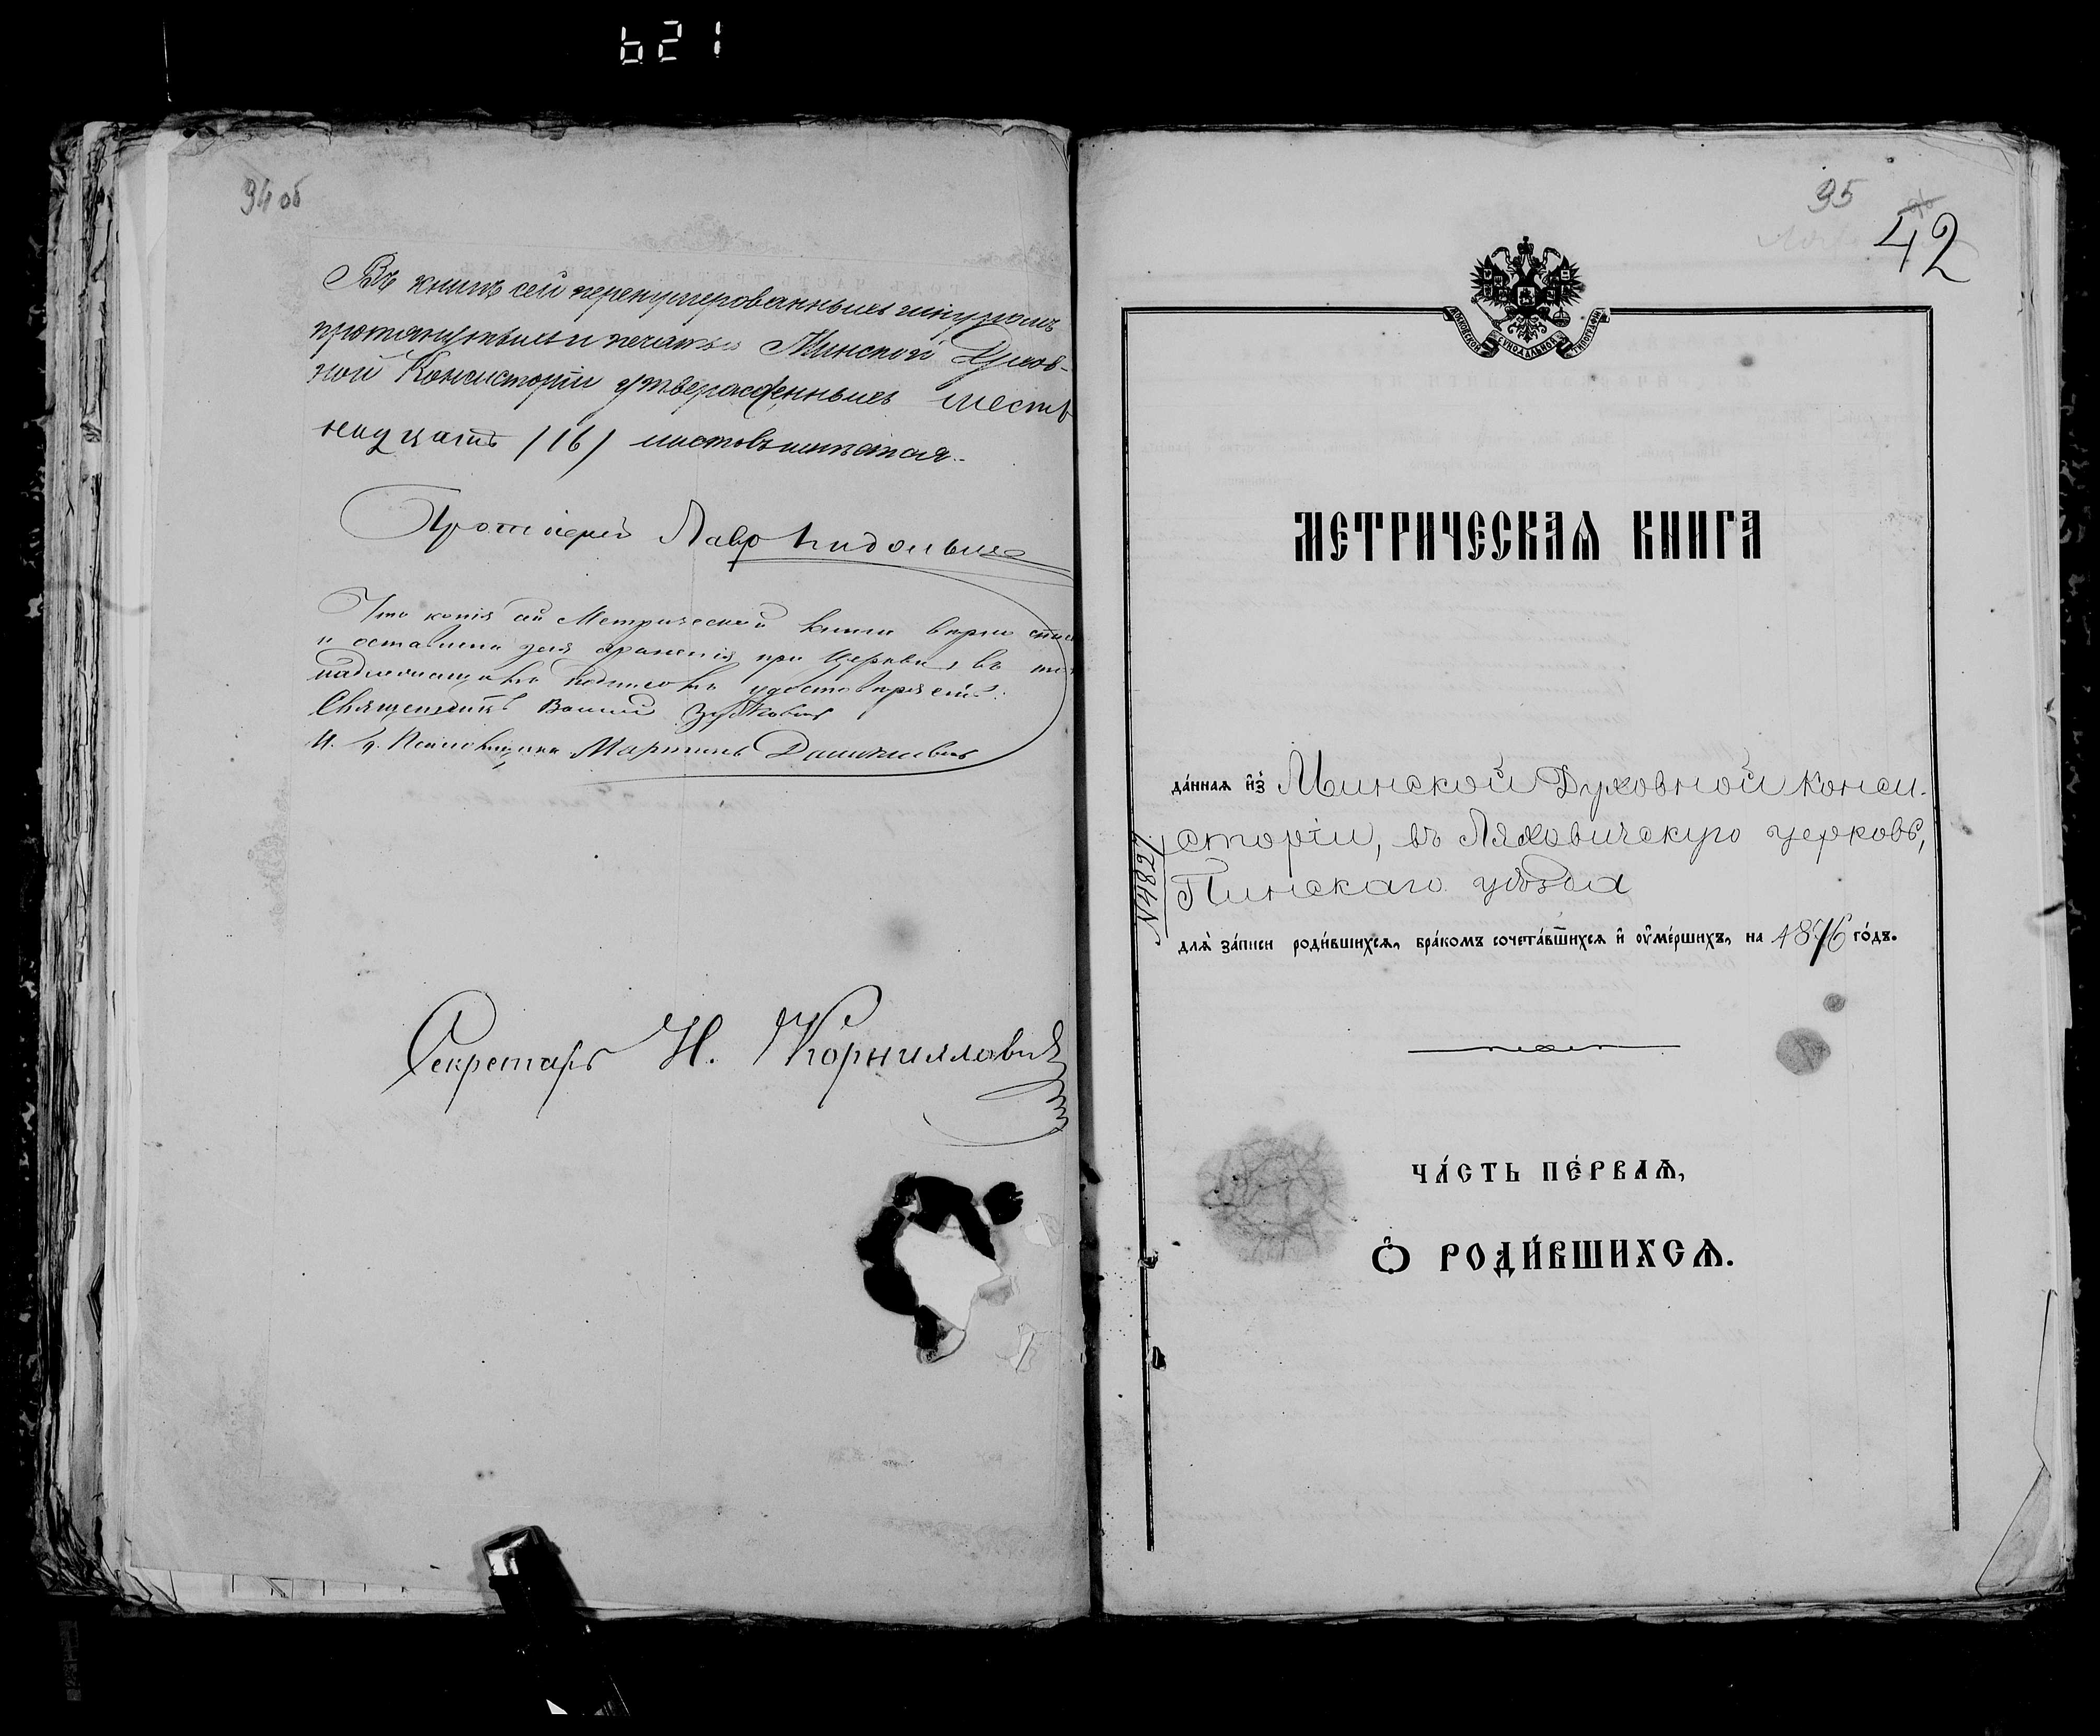 621
94 об
Въ книгѣ сей перенумерованныхъ шнуромъ
протянутыхъ и печатью Минской Духов-
ной Консисторіи утвержденныхъ шест
надцать /16/ листовъ имѣется.
Протоіерей Лавр
Что копія сей Метрической книги вѣрно
и оставлена для храненія при Церкви, въ
надлежащимъ подписомъ удостовѣряемъ.
Священникъ
И. д. Псаломщика Мартинъ
Секретарь Н. Корнилловичъ
95
42
МОСКОВСКОЙ СѴНОДАЛЬНОЙ ТИПОГРАФІИ
МЕТРИЧЕСКАѦ КНИГА
да́ннаѧ и҆з̾ Минской Духовной Конси-
сторіи, въ Ляховичскую церковь,
Пинскаго уѣзда
№4827
длѧ̀ за́писи роди́вшихсѧ, бра́комъ сочета́вшихсѧ и҆ ᲂу҆ме́ршихъ, на 1876 го́дъ.
ЧА́СТЬ ПЕ́РВАѦ,
Ѽ РОДИ́ВШИХСѦ.